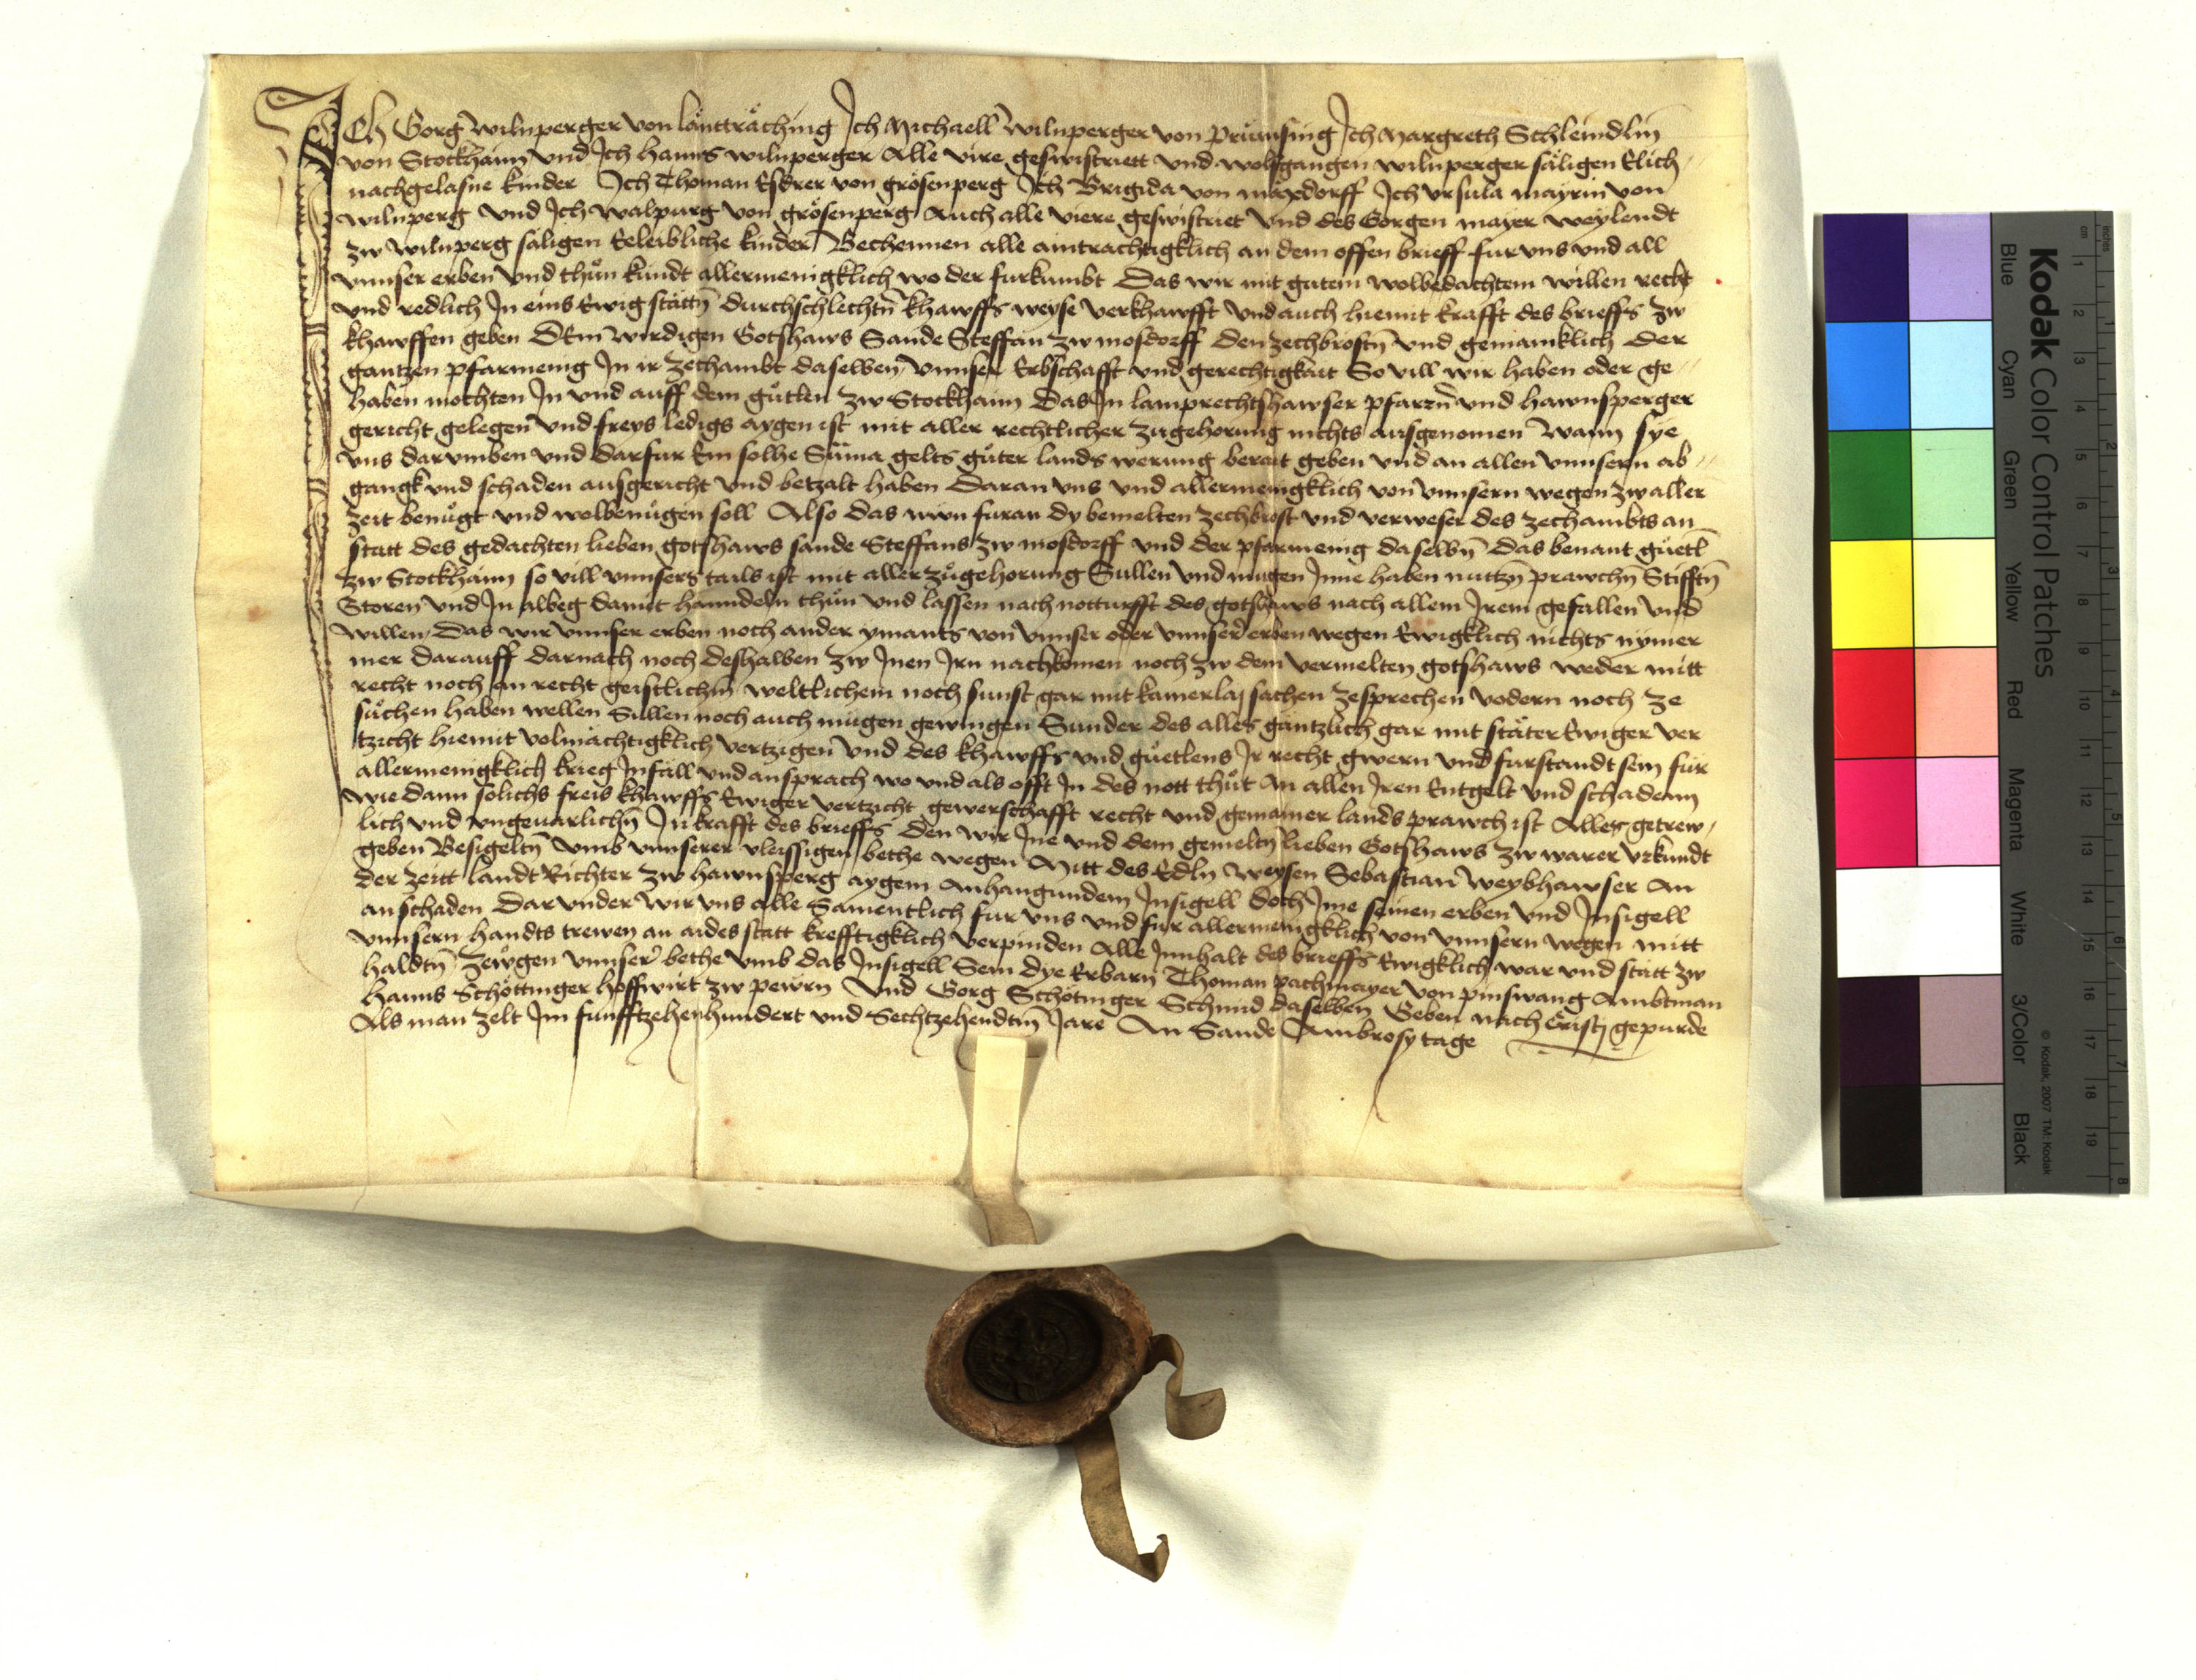 ICh Gorg wilnperger von lanttraching Ich Michaell wilnperger von prunsing Ich Margreth Schleindlin
von Stockhaim vnd Ich hanns wilnperger Alle vire geswistriett vnd wolfgangen wilnperger säligen Elich
nachgelasne kinder Ich Thoman Eskrer von grösenperg Ich Brigida von maxdorff Ich vrsula mayrin von
wilnperg vnd Ich walpurg von grösenperg Auch alle viere geswistriet vnd des Gorgen mayer weylendt
zw wilnperg säligen Eeleibliche kinder Bechennen alle aintrachtigklich an dem offen brieff fur vns vnd all
vnnser erben vnd thun kundt allermenigklich wo der furkumbt Das wir mit gutem wolbedachtem willen recht
vnd redlich In eins Ewig stättn durchschlechtn khawffs weyse verkhawfft vnd auch hiemit krafft des brieffs zw
khawffen geben DEm wirdigen Gotshaws Sande Steffan zw mosdorff den zechbrostn vnd gemainklich der
gantzen pfarmenig In ir zechambt daselben vnnser Erbschafft vnd gerechtigkait So vill wir haben oder ge
haben mochten In vnd auff dem gutlen zw Stockhaim Das In lamprechtshawser pfarrn vnd hawnsperger
gericht gelegen vnd freys ledigs aygen ist mit aller rechtlicher zugehorung nichts ausgenomen wann sye
vns darvmben vnd darfur Ein solhe Suma gelts guter lands werung berait geben vnd an allen vnnsern ab
gangk vnd schaden ausgericht vnd betzalt haben Daran vns vnd allermenigklich von vnnsern wegen zw aller
zeit benugt vnd wolbenugen soll Also das nwn furan dy bemelten zechbrost vnd verweser des zechambts an
statt des gedachten lieben gotshaws sande Steffans zw mosdorff vnd der pfarmenig daselbn Das benant guetl
zw Stockhaim so vill vnnsers tails ist mit aller zugehorung Sullen vnd mugen Inne haben nutzn prawchn Stifftn
Storen vnd In albeg damit hanndeln thun vnd lassen nach notturfft des gotshaws nach allem Irem gefallen vnd
willen Das wir vnnser erben noch ander ymants von vnnser oder vnnser erben wegen Ewigklich nichts nymer
mer darauff darnach noch deshalben zw Inen Irn nachkomen noch zw dem vermelten gotshaws weder mitt
recht noch an recht geistlichm weltlichem noch sunst gar mit kainerlaj sachen zesprechen vodern noch ze
suchen haben wellen Sullen noch auch mugen gewingen Sunder des alles gantzlich gar mit stäter Ewiger ver
tzicht hiemit volmachtigklich vertzigen vnd des khawffs vnd guetlens Ir recht gwern vnd furstandt sein für
allermenigklich krieg Infall vnd ansprach wo vnd als offt In des nott thut An allen Iren Entgelt vnd schadenn
wie dann solichs freis khawffs Ewiger vertzicht gewerschafft recht vnd gemainer lands prawch ist Alles getrew
lich vnd vngeuarlichn In krafft des brieffs den wir Ine vnd dem gemeltn lieben Gotshaws zw warer vrkundt
geben Besigeltn vmb vnnserer vleissigen bethe wegen Mitt des Edln weysen Sebastian weybhawser An
der zeitt landt Richter zw hawnsperg aygem Anhangundem Insigell doch Ime seinen erben vnd Insigell
an schaden Dar vnder wir vns alle Samentlich fur vns vnd fur allermenigklich von vnnsern wegen mitt
vnnsern handts trewen an aides statt krefftigklich verpinden Alle Innhalt des brieffs Ewigklich war vnd statt zw
haldtn Zewgen vnnser bethe vmb das Insigell Sein dye Erbarn Thoman pachmayer von pinswang Ambtman
Hanns Schöttinger hoffwirt zw pewrn Vnd Gorg Schötinger Schmid daselben Geben nach Cristj gepurde
Als man zelt Im funfftzehenhundert vnd Sechtzehendtm Jare An Sande Ambrosy tage
Kodak Color Control Patches
Blue Cyan Green Yellow Red Magenta White 3/Color Black
© Kodak, 2007 TM: Kodak
cm 1 2 3 4 5 6 7 8 9 10 11 12 13 14 15 16 17 18 19
inches 1 2 3 4 5 6 7 8